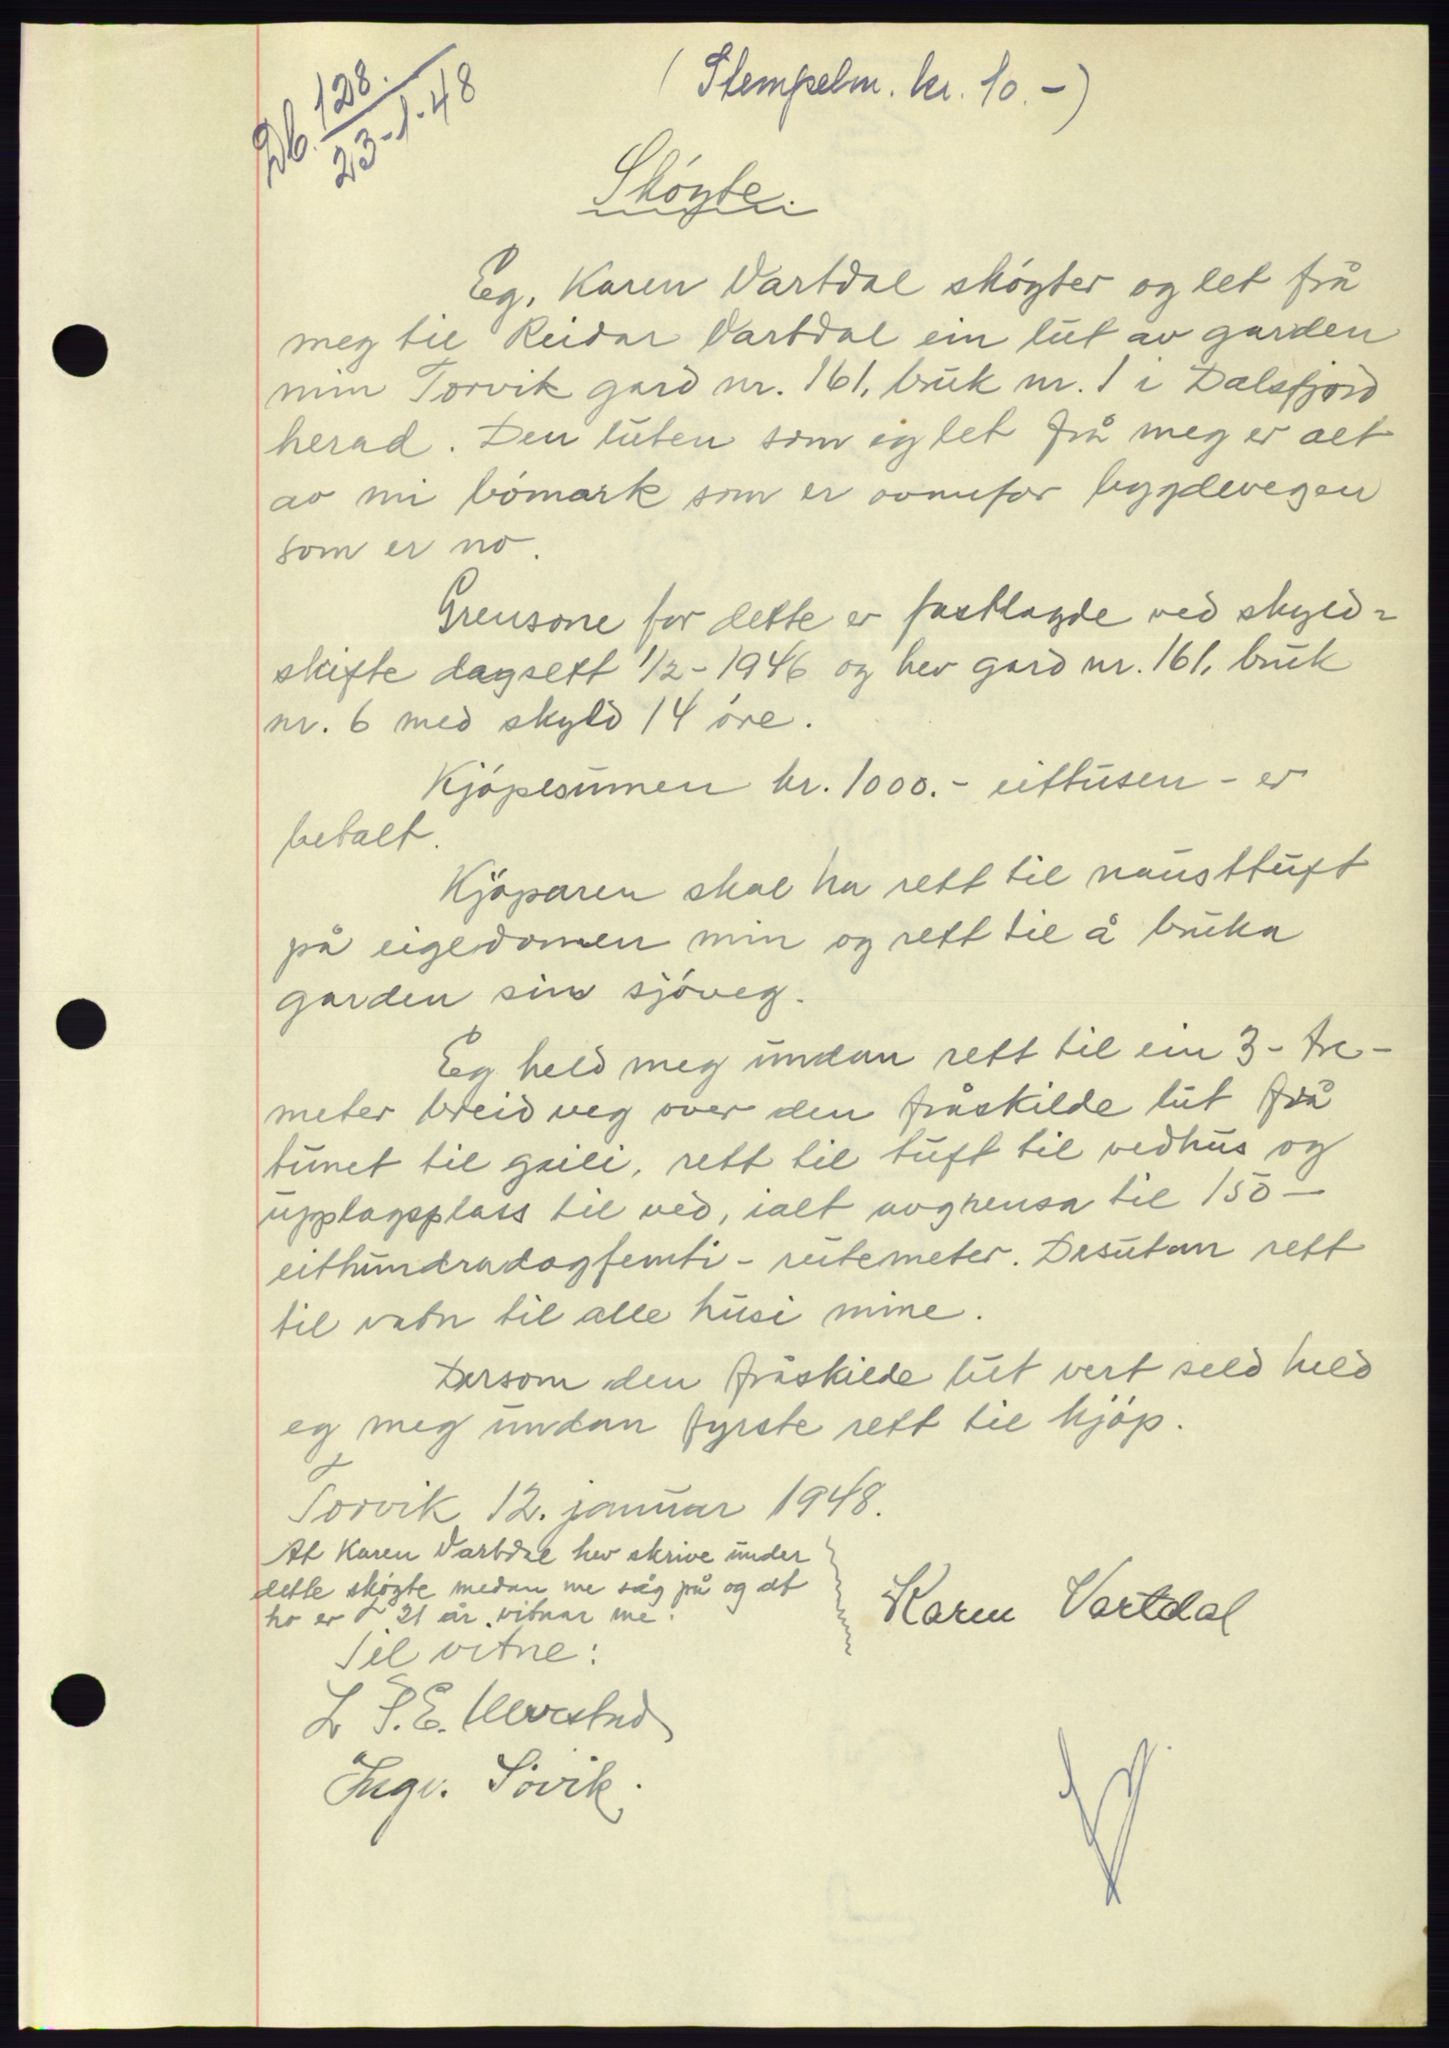 Db. 128.
23-1-48
(Stempelm. kr. 10.-)
Skøyte.
Eg, Karen Vartdal skøyter og let frå
meg til Reidar Vartdal ein lut av garden
min Torvik gard nr. 161, bruk nr. 1 i Dalsfjord
herad. Den luten som eg let frå meg er alt
av mi bømark som er ovanfor bygdevegen
som er no.
Grensone for dette er fastlagde ved skyld=
skifte dagsett 1/2-1946 og hev gard nr. 161, bruk
nr. 6 med skyld 14 øre.
Kjøpesumen kr. 1000.- eittusen - er
betalt.
Kjøparen skal ha rett til nausttuft
på eigedomen min og rett til å bruka
garden sin sjøveg.
Eg held meg undan rett til ein 3- tre-
meter breid veg over den fråskilde lut frå
tunet til geili, rett til tuft til vedhus og
upplagsplass til ved, ialt avgrensa til 150 -
eithundradogfemti - rutemeter. Desutan rett
til vatn til alle husi mine.
Dersom den fråskilde lut vert seld held
eg meg undan fyrste rett til kjøp.
Torvik 12. januar 1948.
At Karen Vartdal hev skrive under
dette skøyte medan me såg på og at
ho er 21 år, vitnar me.
Karen Vartdal
Til vitne:
L P. E.
Ingv. Søvik.